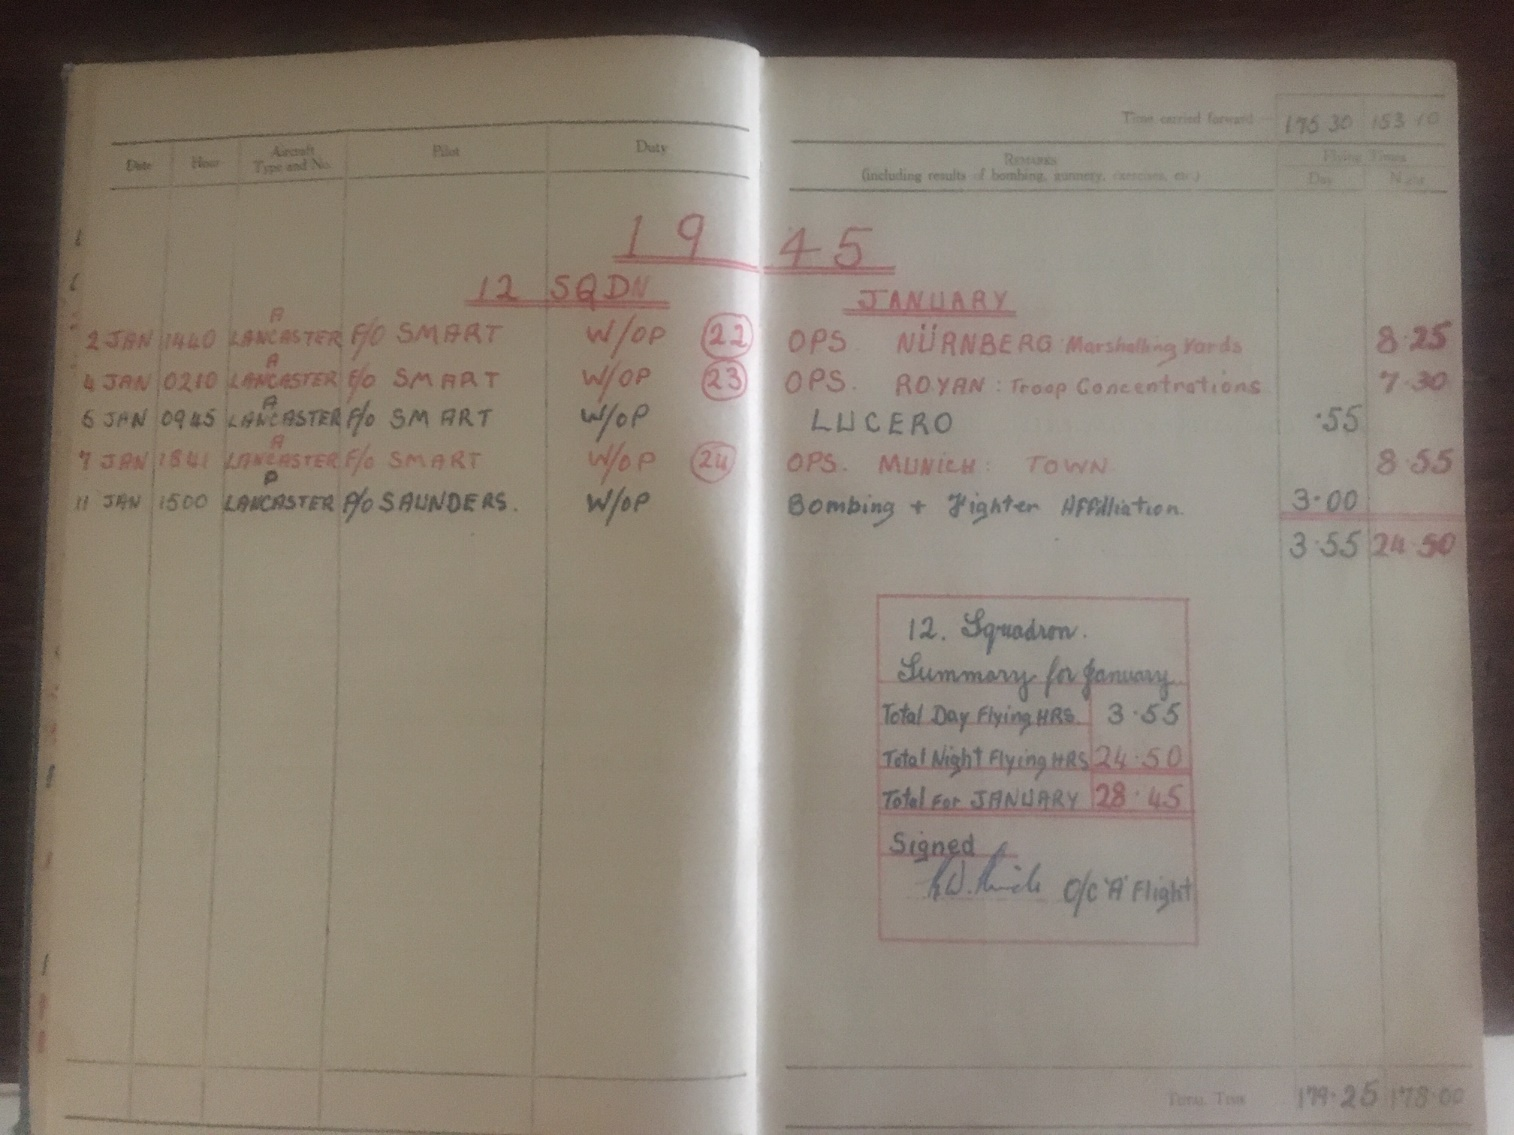 Time carried forward:— 175 30 153 10
Date Hour Aircraft Type and No. Pilot Duty Remarks (including results of bombing, gunnery, exercises, etc.) Flying Times Day Night
1945
12 SQDN JANUARY
2 JAN 1440 LANCASTER A F/O SMART W/OP 22 OPS. NÜRNBERG: Marshalling Yards 8·25
4 JAN 0210 LANCASTER A F/O SMART W/OP 23 OPS. ROYAN: Troop Concentrations 7·30
5 JAN 0945 LANCASTER A F/O SMART W/OP LUCERO ·55
7 JAN 1841 LANCASTER A F/O SMART W/OP 24 OPS. MUNICH: TOWN 8·55
11 JAN 1500 LANCASTER P F/O SAUNDERS. W/OP Bombing + Fighter Affilliation. 3·00
3·55 24·50
12. Squadron.
Summary for January.
Total Day Flying HRS. 3·55
Total Night Flying HRS 24·50
Total For JANUARY 28·45
Signed
O/C 'A' Flight
Total Time 179·25 178·00